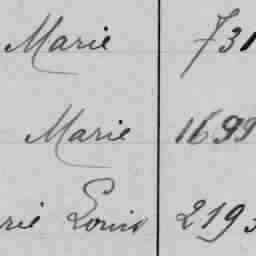 Marie 731
Marie 1699
rie Louis 219